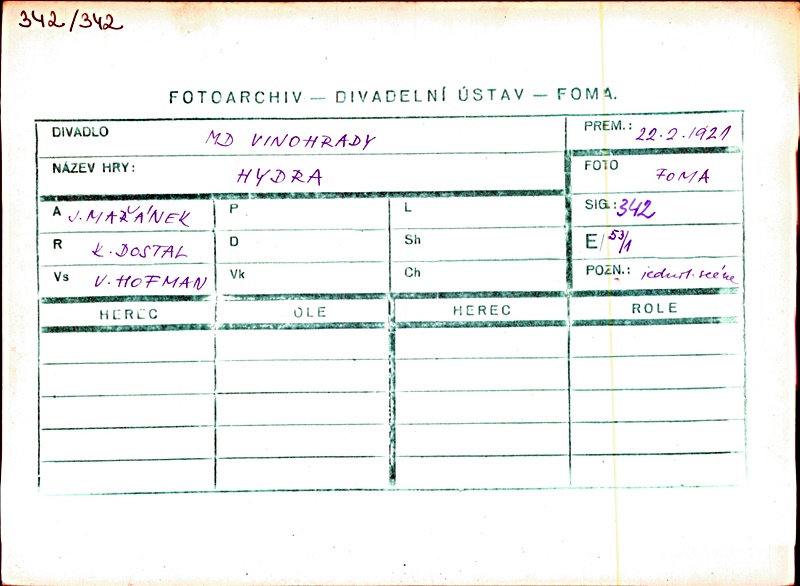 342/342
FOTOARCHIV — DIVADELNÍ ÚSTAV — FOMA.
DIVADLO MD VINOHRADY PREM.: 22.2.1921
NÁZEV HRY: HYDRA FOTO FOMA
A J. MAŘÁNEK P L SIG.: 342
R K. DOSTAL D Sh E/ 53/1
Vs V. HOFMAN Vk Ch POZN.: jednotl. scéne
HEREC OLE HEREC ROLE